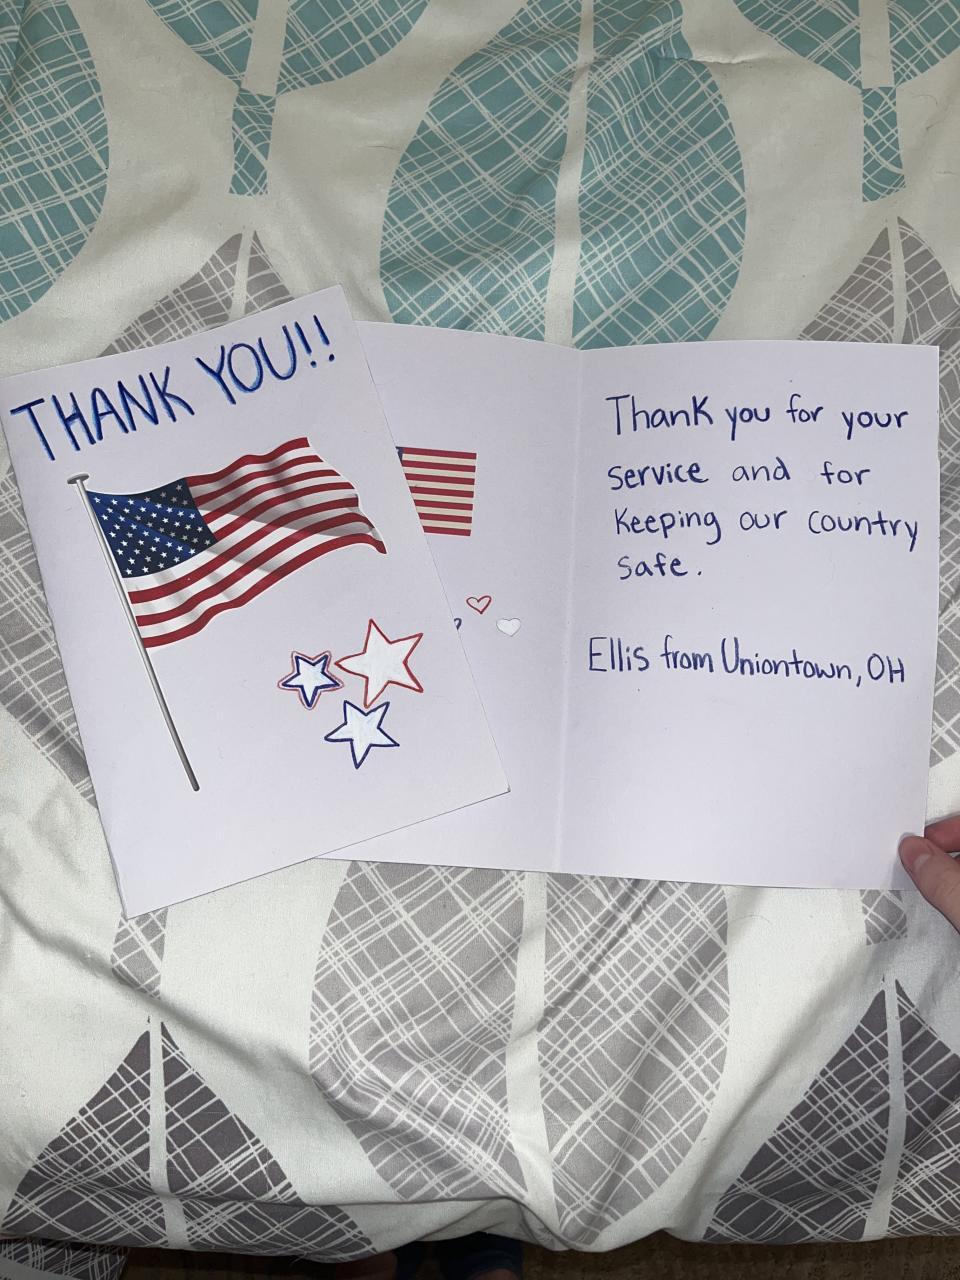 THANK YOU!!
Thank you for your
service and for
keeping our country
safe.
Ellis from Uniontown, OH